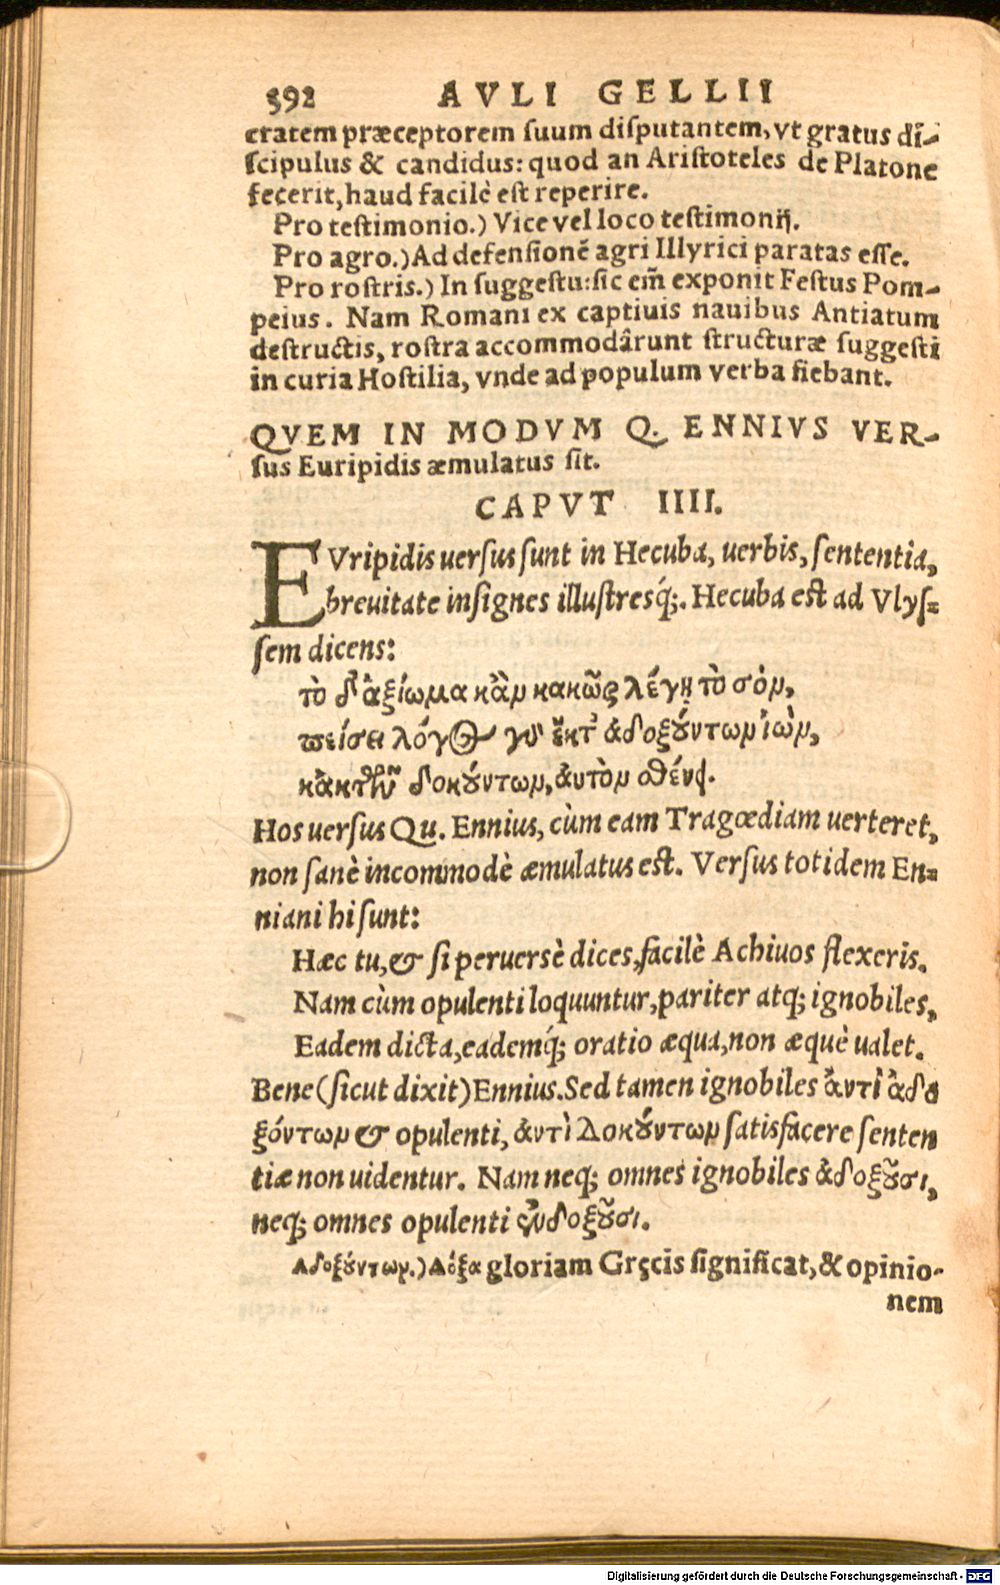 592 AVLI GELLII
cratem præceptorem ſuum diſputantem, vt gratus di-
ſcipulus & candidus: quod an Ariſtoteles de Platone
fecerit, haud facilè eſt reperire.
Pro teſtimonio.) Vice vel loco teſtimonij.
Pro agro.) Ad defenſionẽ agri Illyrici paratas eſſe.
Pro roſtris.) In ſuggeſtu: ſic em̃ exponit Feſtus Pom-
peius. Nam Romani ex captiuis nauibus Antiatum
deſtructis, roſtra accommodârunt ſtructuræ ſuggeſti
in curia Hoſtilia, vnde ad populum verba fiebant.
QVEM IN MODVM Q. ENNIVS VER-
ſus Euripidis æmulatus ſit.
CAPVT IIII.
EVripidis uerſus ſunt in Hecuba, uerbis, ſententia,
breuitate inſignes illuſtresq́;. Hecuba eſt ad Vlyſ=
ſem dicens:
τὸ δ' ἀξίωμα κἂν κακῶς λέγῃ τὸ σὸν,
πείσει λόγος γὸ ἔκτ' ἀδοξούντων ἰὼν,
κἀκ τῶν δοκούντων, αὐτὸν σθένει.
Hos uerſus Qu. Ennius, cùm eam Tragœdiam uerteret,
non ſanè incommodè æmulatus eſt. Verſus totidem En=
niani hi ſunt:
Hæc tu, & ſi peruersè dices, facilè Achiuos flexeris.
Nam cùm opulenti loquuntur, pariter atq; ignobiles,
Eadem dicta, eademq́; oratio æqua, non æquè ualet.
Bene (ſicut dixit) Ennius. Sed tamen ignobiles ἀντὶ ἀδο
ξόντων & opulenti, ἀντὶ Δοκούντων ſatisfacere ſenten
tiæ non uidentur. Nam neq; omnes ignobiles ἀδοξοῦσι,
neq; omnes opulenti εὐδοξοῦσι.
Αδοξούντων.) Δόξα gloriam Gręcis ſignificat, & opinio-
nem
Digitalisierung gefördert durch die Deutsche Forschungsgemeinschaft - DFG